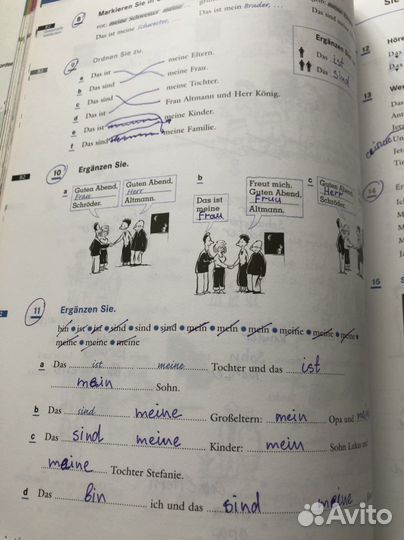 8 Markieren Sie in
rot: meine Schwester, meine
Das ist meine Schwester,
Das ist mein Bruder, ...
9 Ordnen Sie zu.
a Das ist meine Eltern.
b Das sind meine Frau.
c Das sind meine Tochter.
d Das ist Frau Altmann und Herr König.
e Das ist meine Kinder.
f Das sind meine Familie.
Ergänzen S
Das ist
Das sind
10 Ergänzen Sie.
a
Guten Abend,
Frau
Schröder.
Guten Abend,
Herr
Altmann.
b
Das ist
meine
Frau
Freut mich.
Guten Abend,
Frau
Altmann.
c
Guten
Herr
Schröder.
11 Ergänzen Sie.
bin • ist • ist • sind • sind • sind • mein • mein • mein • meine • meine • meine •
meine • meine • meine
a Das ist meine Tochter und das ist
mein Sohn.
b Das sind meine Großeltern: mein Opa und
c Das sind meine Kinder: mein Sohn Lukas und
meine Tochter Stefanie.
d Das bin ich und das sind meine
12
13
14
15
Avito